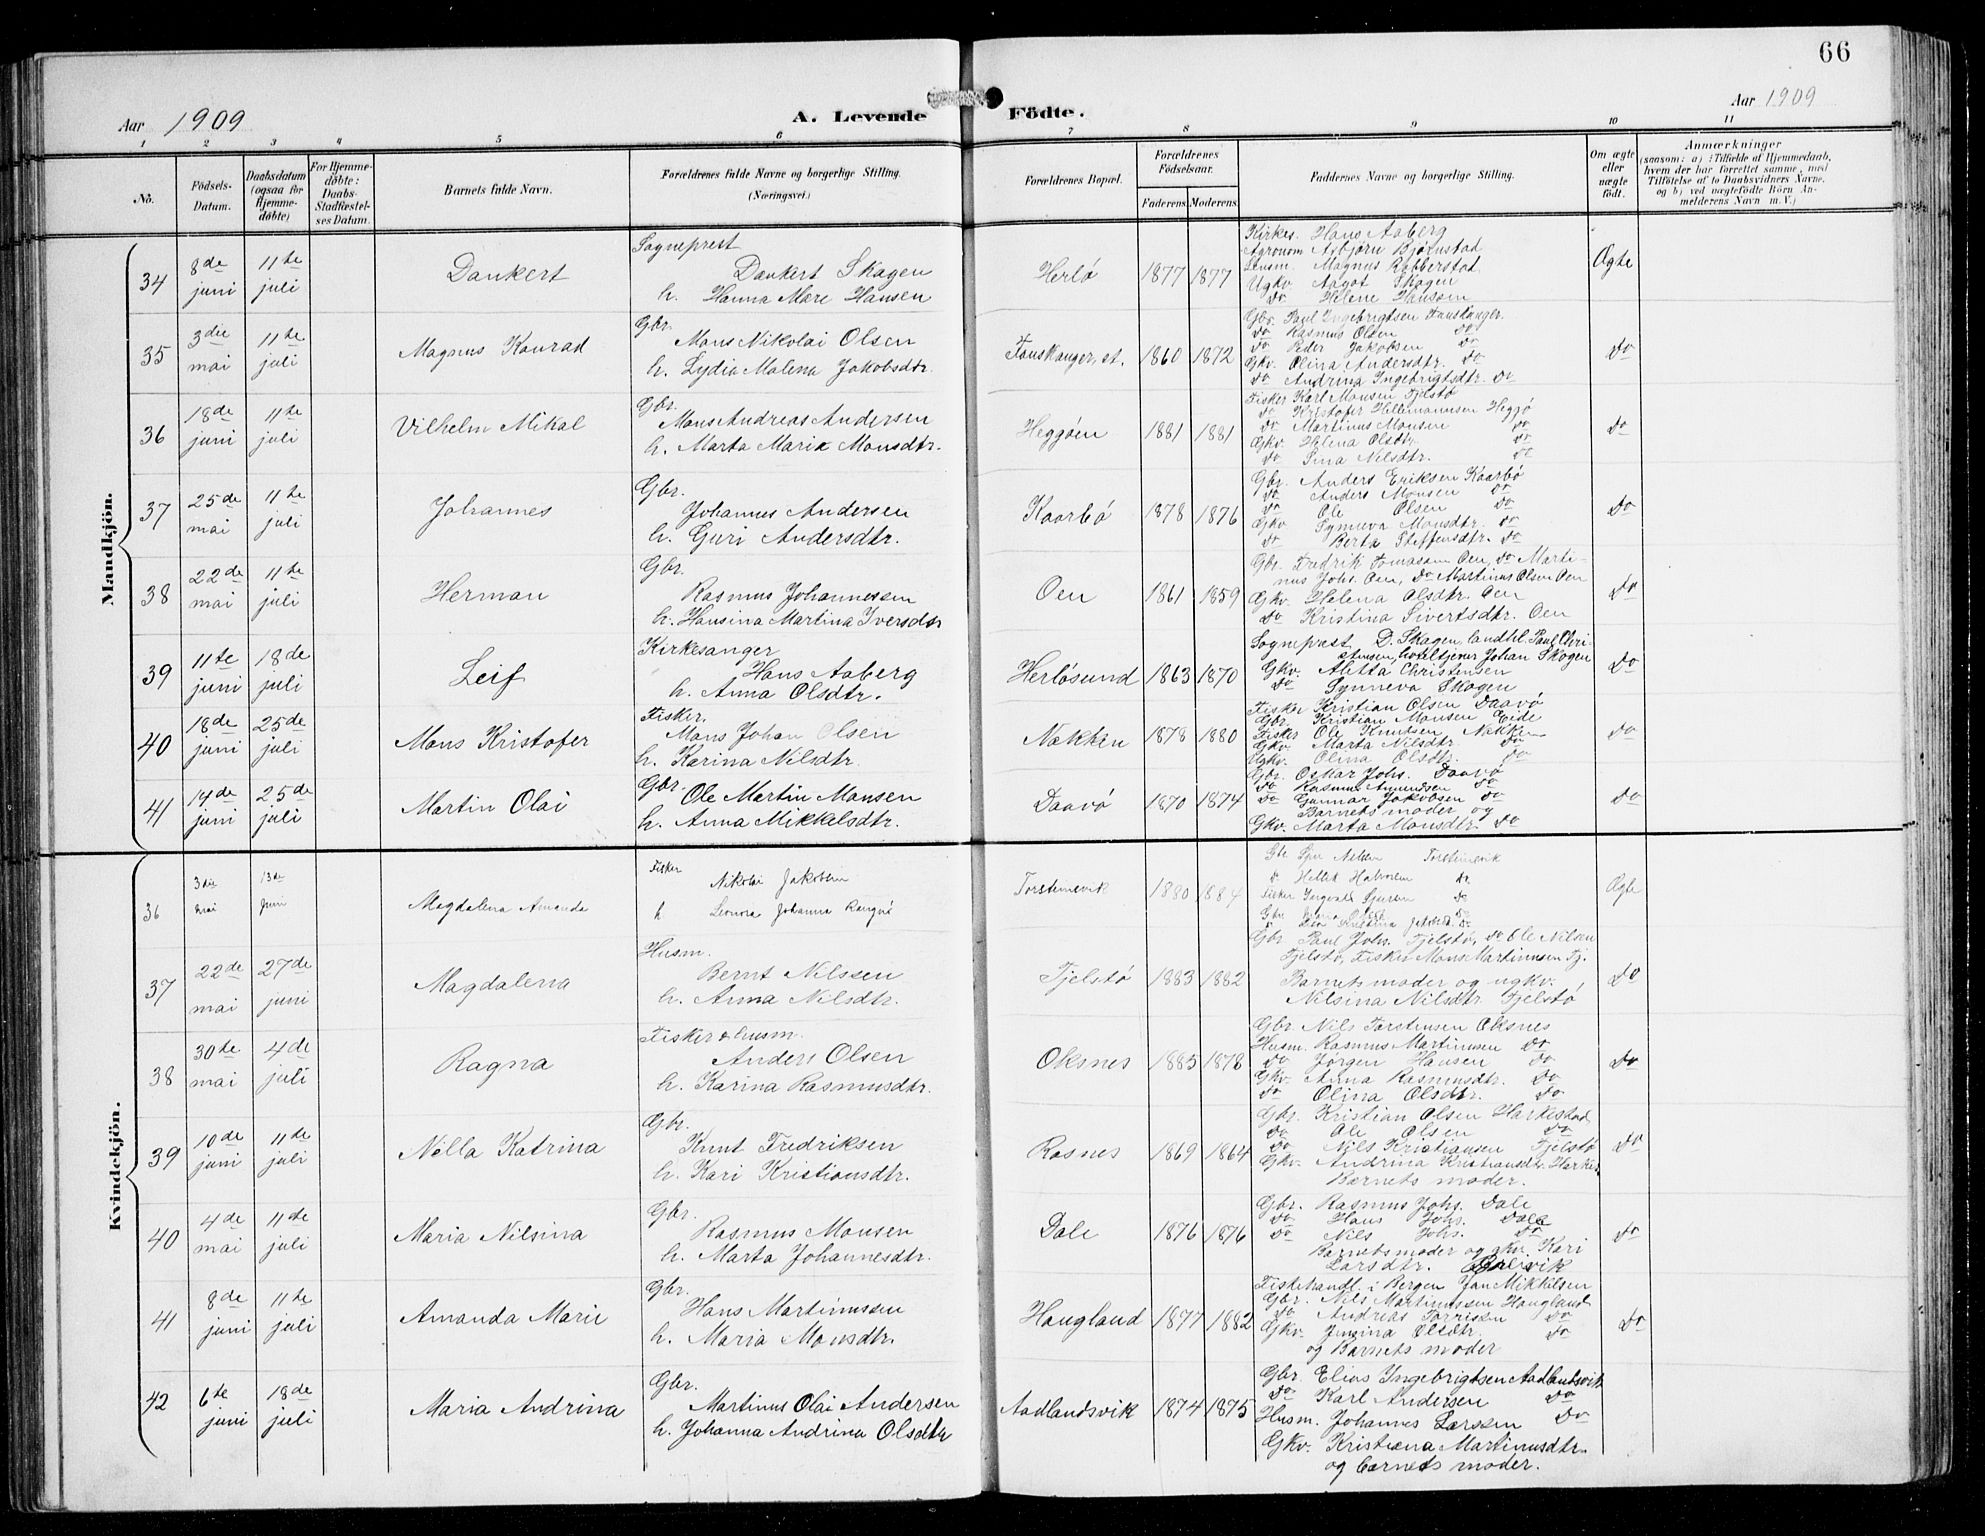 66
Aar 1909
A. Levende Födte.
Aar 1909
1 2 3 4 5 6 7 8 9 10 11
No.
Födsels-
Datum.
Daabsdatum
(ogsaa for
Hjemme-
døbte)
For Hjemme-
døbte:
Daabs-
Stadfæstel-
ses Datum.
Barnets fulde Navn.
Forældrenes fulde Navne og borgerlige Stilling.
(Næringsvei.)
Forældrenes Bopæl.
Forældrenes
Fødselsaar.
Faderens. Moderens.
Faddernes Navne og borgerlige Stilling.
Om ægte
eller
uægte
født.
Anmærkninger
(saasom: a) i Tilfælde af Hjemmedaab,
hvem der har forrettet samme, med
Tilföielse af to Daabsvidners Navne,
og b) ved uægtefödte Börn An-
melderens Navn m. V.)
Mandkjön.
34
8de juni
11te juli
Dankert
Sogneprest
Dankert Skagen
h. Hanna Marie Hansen
Herlö
1877 1877
Kirkes. Hans Aaberg
Agronom Asbjörn Bjørnstad
Lensm. Magnus Rabberstad
Ugkv. Aagot Skagen
Do Helene Hansen
Ægte
35
3die mai
11te juli
Magnus Konrad
Gbr.
Mons Nikolai Olsen
h. Lydia Malena Jakobsdtr.
Fauskanger, et.
1860 1872
Gbr. Paul Ingebrigtsen Fauskanger
Do Rasmus Olsen Do
Do Peder Jakobsen Do
Gkv. Olina Andersdtr. Do
Do Andrina Ingebrigtsdtr. Do
Do
36
18de juni
11te juli
Vilhelm Mikal
Gbr.
Mons Andreas Andersen
h. Marta Maria Monsdtr.
Heggöen
1881 1881
Fisker Karl Monsen Tjelstö
Do Kristofer Hellemannsen Heggö
Do Martinus Monsen Do
Gkv. Helena Olsdtr. Do
Do Sina Nilsdtr. Do
Do
37
25de mai
11te juli
Johannes
Gbr.
Johannes Andersen
h. Guri Andersdtr.
Kaarbö
1878 1876
Gbr. Anders Eriksen Kaarbö
Do Anders Monsen Do
Do Ole Olsen Do
Gkv. Synneva Monsdtr. Do
Do Berta Steffensdtr. Do
Do
38
22de mai
11te juli
Herman
Gbr.
Rasmus Johannessen
h. Hansina Martina Iversdtr
Oen
1861 1859
Gbr. Fredrik Tomassen Oen, Do Marti-
nus Johs. Oen, Do Martinus Olsen Oen
Gkv. Helena Olsdtr. Oen
Do Kristina Sivertsdtr. Oen
Do
39
11te juni
18de juli
Leif
Kirkesanger
Hans Aaberg
h. Anna Olsdtr.
Herlösund
1863 1870
Sogneprest D. Skagen, landhl. Paul Chri-
stensen, hoteltjener Johan Skogen
Gkv. Aletta Christensen
Do Synneva Skogen
Do
40
18de juni
25de juli
Mons Kristofer
Fisker.
Mons Johan Olsen
h. Karina Nilsdtr.
Nakken
1878 1880
Fisker Kristian Olsen Daavö
Gbr. Kristian Monsen Eide
Fisker Ole Knutsen Nakken
Gkv. Marta Nilsdtr. Do
Ugkv. Olina Olsdtr. Do
Do
41
14de juni
25de juli
Martin Olai
Gbr.
Ole Martin Monsen
h. Anna Mikkelsdtr.
Daavö
1870 1874
Gbr. Oskar Johs. Daavö
Do Rasmus Amundsen Do
Do Gunnar Jakobsen Do
Barnets moder og
Gkv. Marta Monsdtr. Do
Do
Kvindekjön.
36
3die mai
13de juni
Magdalena Amanda
Fisker
Nikolai Jakobsen
h Leonora Johanna
Torsteinsvik
1880 1884
Gbr Nilsen Torsteinsvik
Do Hellik Halvorsen Do
Fisker Ingvald Sjursen Do
Gbr
Ægte
37
22de mai
27de juni
Magdalena
Husm.
Bernt Nilssen
h. Anna Nilsdtr.
Tjelstö
1883 1882
Gbr. Paul Johs. Tjelstö, Do Ole Nilsen
Tjelstö, Fisker Mons Martinussen Tj.
Barnets moder og ugkv.
Nilsina Nilsdtr Tjelstö
Do
38
30te mai
4de juli
Ragna
Fisker & husm.
Anders Olsen
h. Karina Rasmusdtr.
Oksnes
1885 1878
Gbr Nils Torstensen Oksnes
Husm. Rasmus Martinussen Do
Do Jörgen Hansen Do
Gkv. Anna Rasmusdtr. Do
Do Olina Olsdtr. Do
Do
39
10de juni
11te juli
Nella Katrina
Gbr.
Knut Fredriksen
h. Kari Kristiansdtr.
Rosnes
1869 1864
Gbr. Kristian Olsen Harkestad
Do Ole Olsen Do
Do Nils Kristiansen Tjelstö
Gkv. Andrina Kristiansdtr. Harkes.
Barnets moder.
Do
40
4de mai
11te juli
Maria Nilsina
Gbr.
Rasmus Monsen
h. Marta Johannesdtr.
Dale
1876 1876
Gbr. Rasmus Johs. Dale
Do Hans Johs. Dale
Do Nils Johs. Do
Barnets moder og gkv. Kari
Larsdtr.
Do
41
8de juni
11te juli
Amanda Marie
Gbr.
Hans Martinussen
h. Maria Monsdtr.
Haugland
1877 1882
Fiskehandl. i Bergen Jan Mikkelsen
Gbr. Nils Martinussen Haugland
Do Andreas Torrisen Do
Gkv. Jensina Olsdtr. Do
og Barnets moder
Do
42
6te juni
18de juli
Maria Andrina
Gbr.
Martinus Olai Andersen
h. Johanna Andrina Olsdtr
Aadlandsvik
1874 1875
Gbr. Elias Ingebrigtsen Aadlandsvik
Do Karl Andersen Do
Husm. Johannes Larssen Do
Gkv. Kristiana Martinusdtr.
og barnets moder.